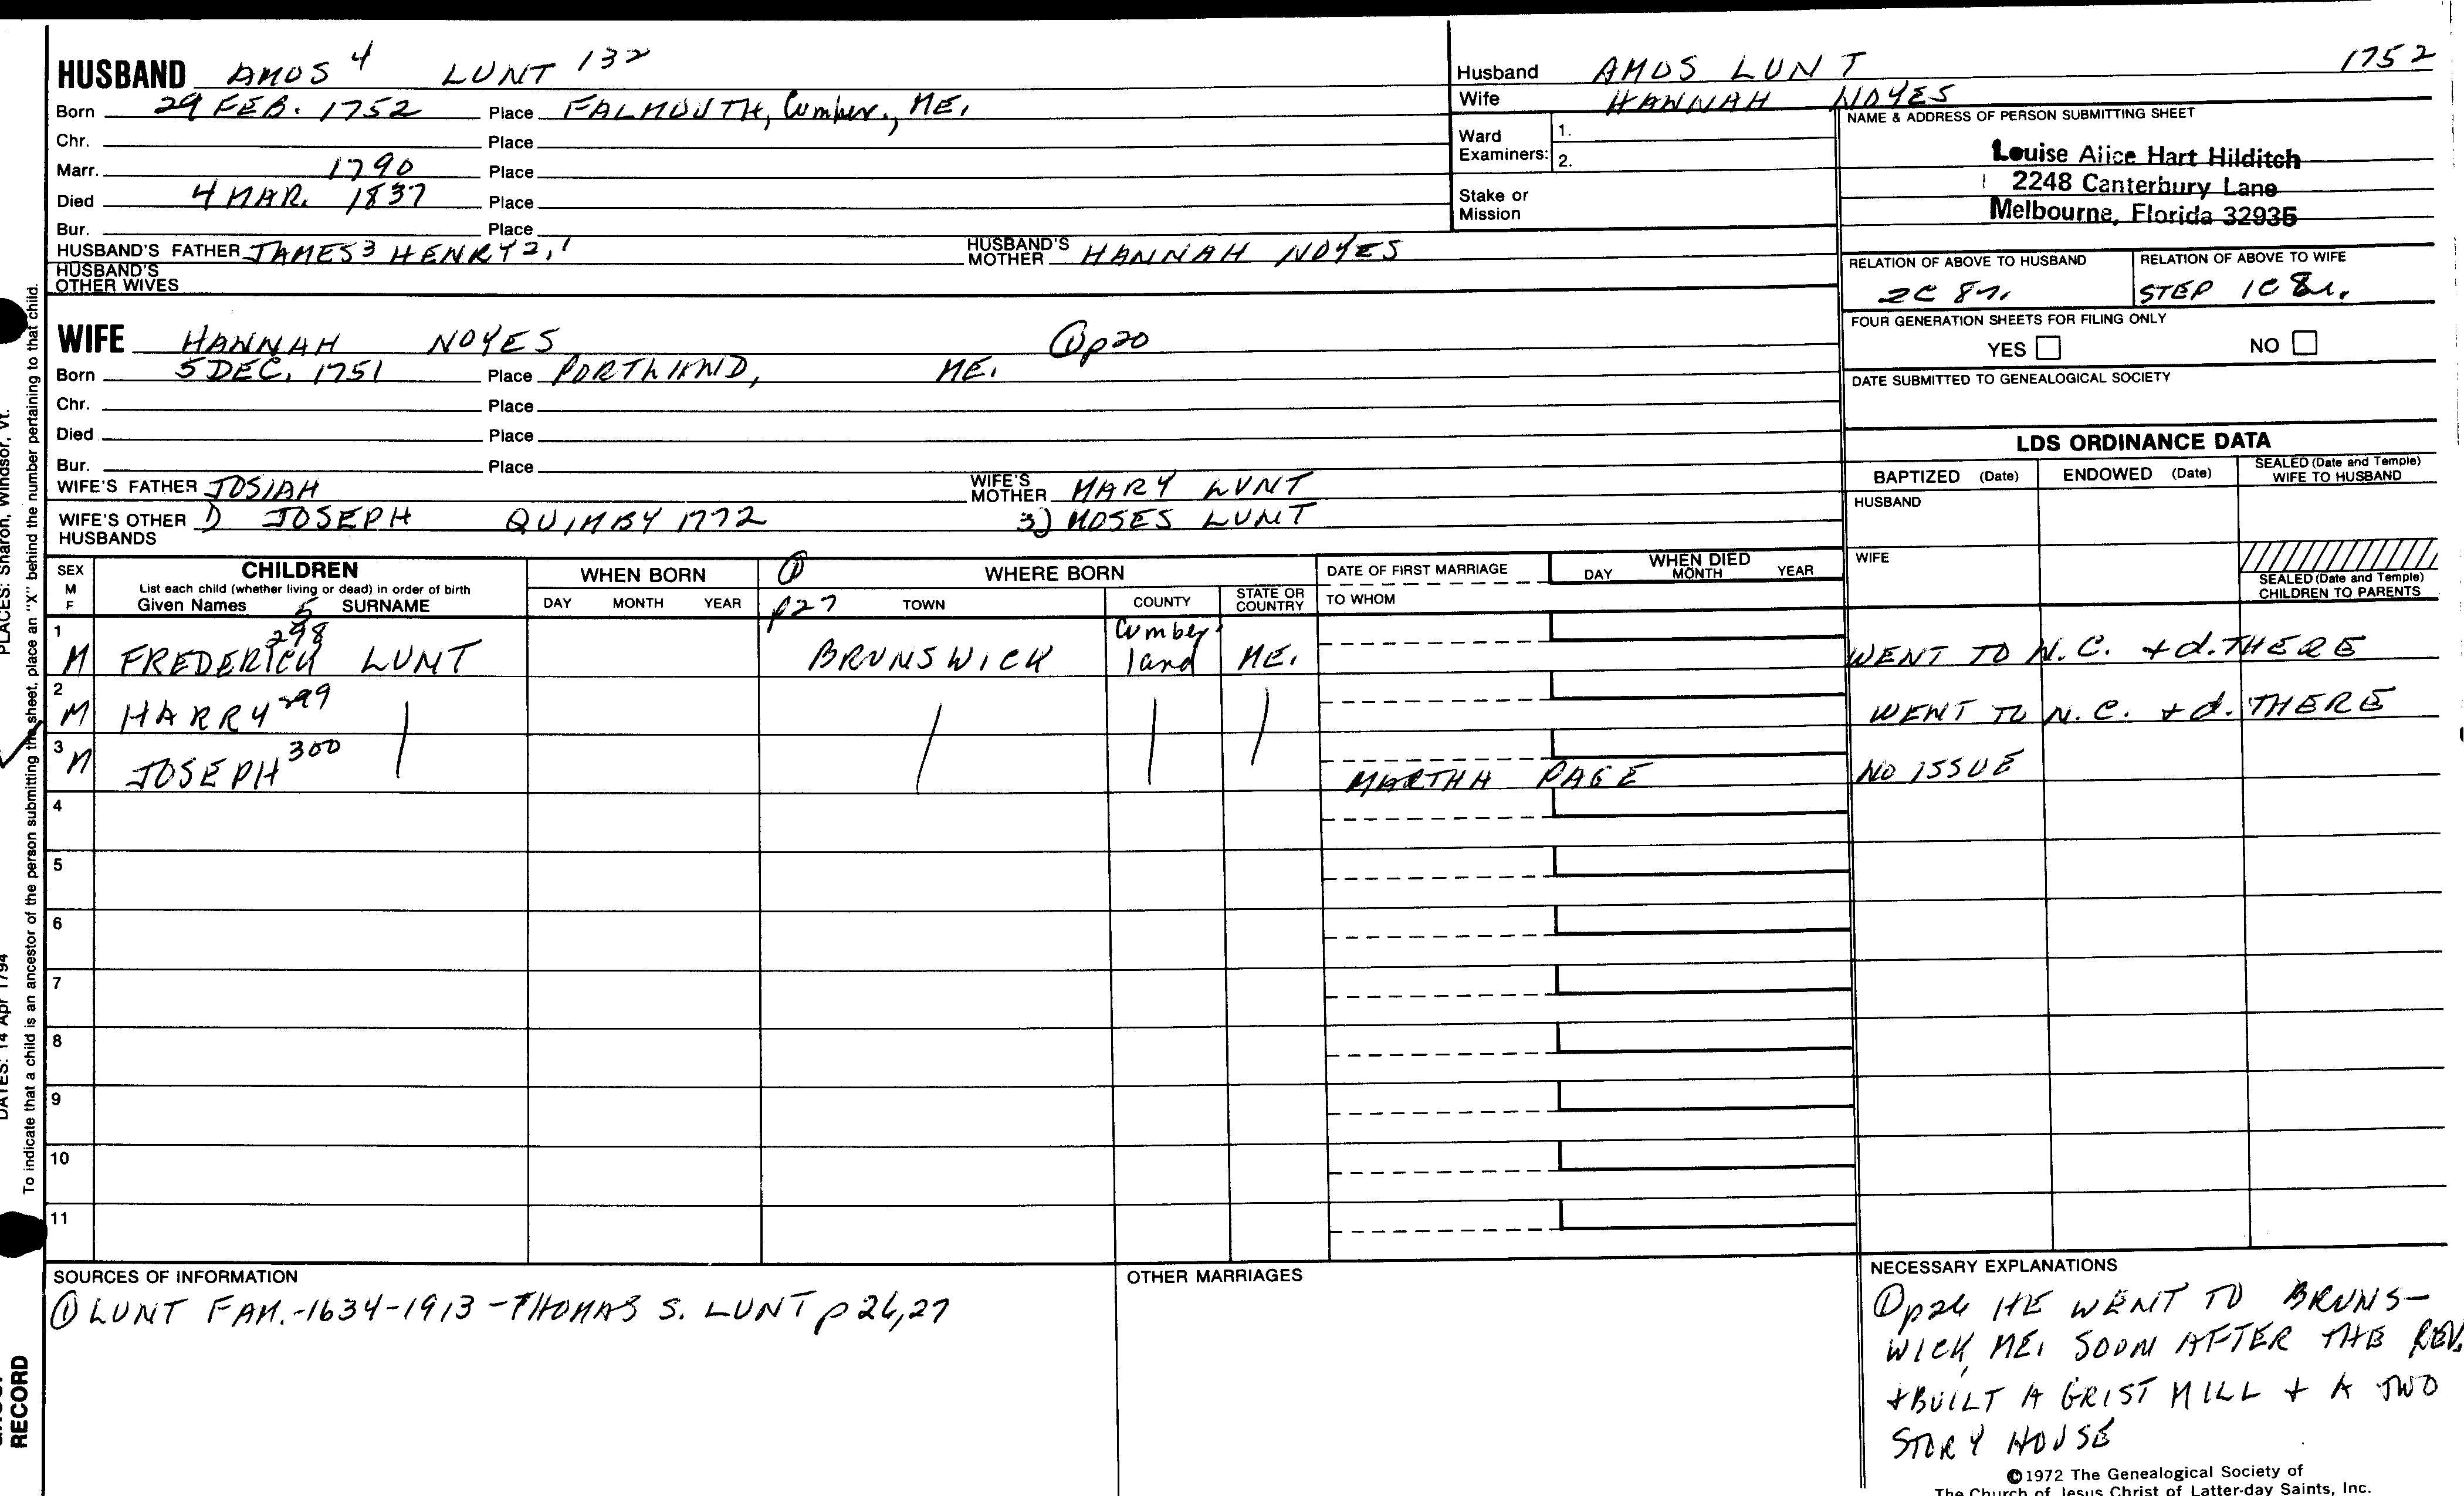 HUSBAND AMOS 4 LUNT 132
Born 29 FEB. 1752 Place FALMOUTH, Cumber., ME.
Chr. Place
Marr. 1790 Place
Died 4 MAR. 1837 Place
Bur. Place
HUSBAND'S FATHER JAMES 3 HENRY 2,1 HUSBAND'S MOTHER HANNAH NOYES
HUSBAND'S OTHER WIVES
WIFE HANNAH NOYES ① p20
Born 5 DEC. 1751 Place PORTLAND, ME.
Chr. Place
Died Place
Bur. Place
WIFE'S FATHER JOSIAH WIFE'S MOTHER MARY LUNT
WIFE'S OTHER HUSBANDS 1) JOSEPH QUIMBY 1772 3) MOSES LUNT
Husband AMOS LUNT 1752
Wife HANNAH NOYES
Ward Examiners: 1.
2.
Stake or Mission
NAME & ADDRESS OF PERSON SUBMITTING SHEET
Louise Alice Hart Hilditch
2248 Canterbury Lane
Melbourne, Florida 32935
RELATION OF ABOVE TO HUSBAND RELATION OF ABOVE TO WIFE
2C 8r. STEP 1C 8r.
FOUR GENERATION SHEETS FOR FILING ONLY
YES NO
DATE SUBMITTED TO GENEALOGICAL SOCIETY
LDS ORDINANCE DATA
BAPTIZED (Date) ENDOWED (Date) SEALED (Date and Temple) WIFE TO HUSBAND
HUSBAND
WIFE
SEALED (Date and Temple) CHILDREN TO PARENTS
SEX M F CHILDREN WHEN BORN ① WHERE BORN DATE OF FIRST MARRIAGE WHEN DIED
List each child (whether living or dead) in order of birth
Given Names 5 SURNAME DAY MONTH YEAR p27 TOWN COUNTY STATE OR COUNTRY TO WHOM DAY MONTH YEAR
1 M FREDERICK 298 LUNT BRUNSWICK Cumberland ME. WENT TO N.C. + d. THERE
2 M HARRY 299 WENT TO N.C. + d. THERE
3 M JOSEPH 300 MARTHA PAGE NO ISSUE
4
5
6
7
8
9
10
11
SOURCES OF INFORMATION
① LUNT FAM.-1634-1913-THOMAS S. LUNT p 26,27
OTHER MARRIAGES
NECESSARY EXPLANATIONS
① p26 HE WENT TO BRUNS-
WICK, ME. SOON AFTER THE REV.
+ BUILT A GRIST MILL + A TWO
STORY HOUSE
©1972 The Genealogical Society of
The Church of Jesus Christ of Latter-day Saints, Inc.
PLACES: Sharon, Windsor, Vt.
DATES: 14 Apr 1794
To indicate that a child is an ancestor of the person submitting the sheet, place an "X" behind the number pertaining to that child.
RECORD